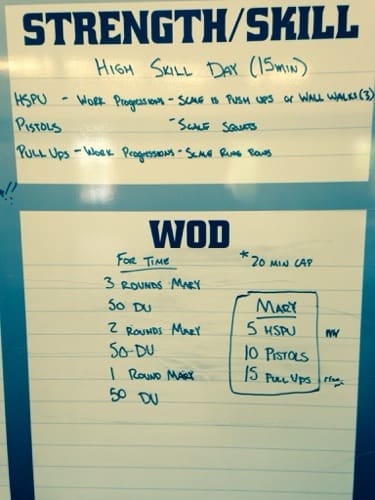 STRENGTH/SKILL
HIGH SKILL DAY (15MIN)
HSPU - WORK PROGRESSIONS - SCALE IS PUSH UPS or WALL WALKS (3)
PISTOLS - SCALE SQUATS
PULL UPS - WORK PROGRESSIONS - SCALE RING ROWS
!!
WOD
FOR TIME * 20 MIN CAP
3 ROUNDS MARY
50 DU
2 ROUNDS MARY
50-DU
1 ROUND MARY
50 DU
MARY
5 HSPU
10 PISTOLS
15 PULL UPS